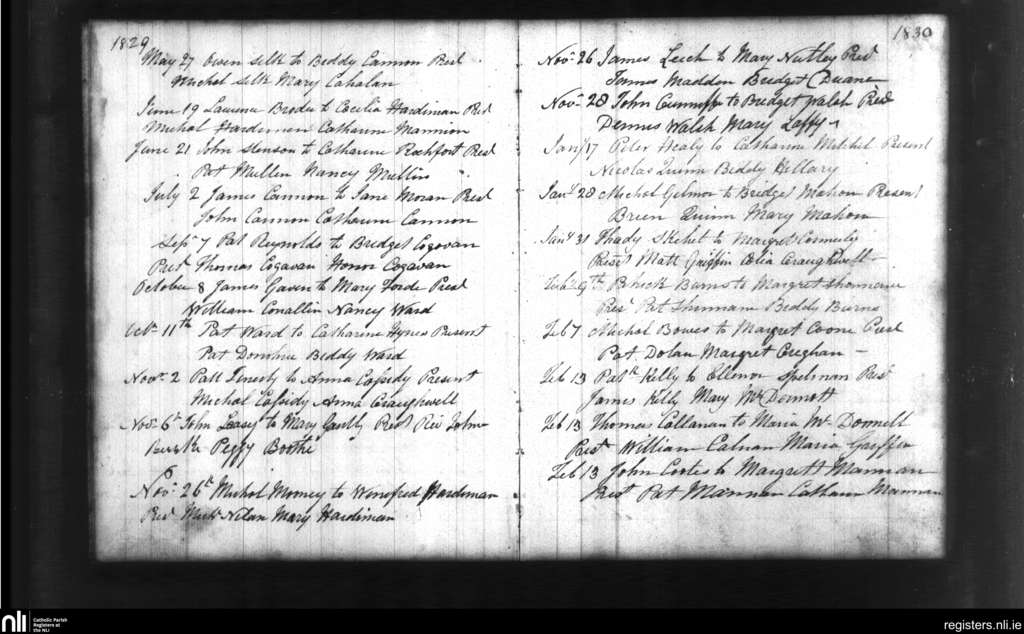 1829
May 27 Owen Silk to Biddy Cannon Prest
Michol Silk Mary Cahalan
June 19 Laurence Broder to Cecilia Hardiman Prest
Michol Hardiman Catharine Mannion
June 21 John to Catharine Rochfort Prest
Pat Mullen Nancy Mullin
July 2 James Cannon to Jane Moran Prest
John Cannon Catharine Cannon
Sepr 7 Pat Reynolds to Bridget Cogavan
Prest Thomas Cogavan Honor Cogavan
October 8 James Gaven to Mary Forde Prest
William Conallin Nancy Ward
Octr 11th Pat Ward to Catharine Hynes Present
Pat Donohue Biddy Ward
Novr 2 Patt to Anna Cassidy Present
Michol Cassidy Anna Craughwell
Novr 6th John to Mary Prest Rev John
Peggy Boothe
6
Novr 26th Michol Mooney to Winefred Hardiman
Prest Nilan Mary Hardiman
1830
Novr 26 James Leech to Mary Nutley Prest
James Madden Bridget Duane
Novr 28 John to Bridget Walsh Prest
Dennis Walsh Mary Laffy
Jany 17 Peter Healy to Catharine Mitchel Present
Nicolas Quinn Biddy Hillary
Jany 28 Michol Gilmor to Bridget Mahon Present
Brien Quinn Mary Mahon
Jany 31 Thady Skehet to Margret
Prest Matt Griffin Celia Craughwell
Burns to Margret
Prest Pat Biddy Burns
Feb 7 Michol Bowes to Margret Coone Prest
Pat Dolan Margret Creghan
Feb 13 Patk Kelly to Ellenor Spelman Prest
James Kelly Mary McDermott
Feb 13 Thomas Callanan to Maria McDonnell
Prest William Calnan Maria Griffin
Feb 13 John to Margrett Mannan
Prest Pat Mannan Catharn Mannan
nli
Catholic Parish
Registers at
the NLI
registers.nli.ie